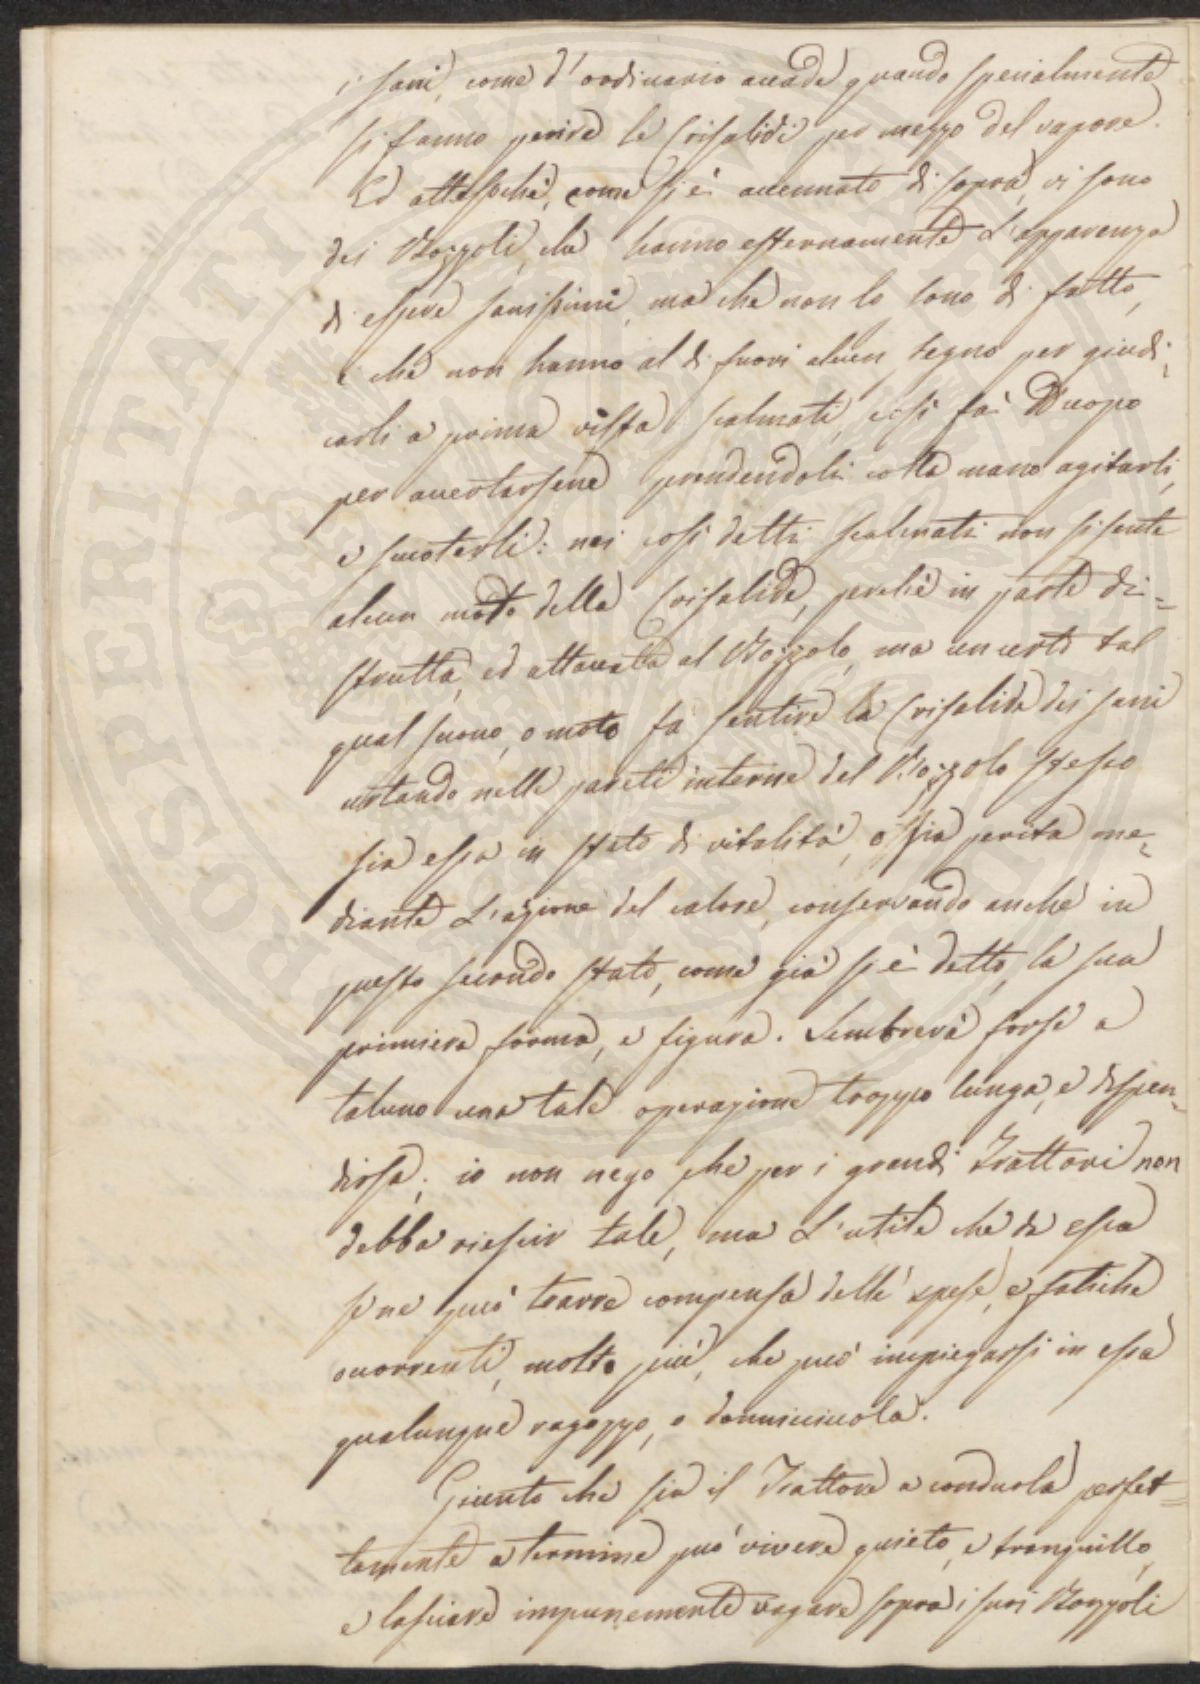 i sani, come d'ordinario accade quando specialmente
si fanno perire le Crisalidi per mezzo del vapore.
Ed attesochè, come si è accennato di sopra, vi sono
dei Bozzoli, che hanno esternamente L'apparenza
di essere sanissimi, ma che non lo sono di fatto,
e che non hanno al di fuori alcun segno per giudi-
carli a prima vista scalmati, così fa' D'uopo
per accertarsene prendendoli colla mano agitarli,
e scuoterli: nei così detti scalmati non si sente
alcun moto della Crisalide, perchè in parte di=
strutta, ed attaccata al Bozzolo, ma un certo tal
qual suono, o moto fa sentire la Crisalide dei sani
urtando nelle pareti interne del Bozzolo stesso
sia essa in stato di vitalità, o sia perita me-
diante L'azione del calore, conservando anche in
questo secondo stato, come già si è detto, la sua
primiera forma, e figura. Sembrerà forse a
taluno una tale operazione troppo lunga, e dispen-
diosa; io non nego che per i grandi Trattori non
debba riescir tale, ma L'utile che da essa
se ne può trarre compensa delle spese, e fatiche
occorrenti, molto più, che può impiegarsi in essa
qualunque ragazzo, o donnicciuola.
Giunto che sia il Trattore a condurla perfet=
tamente a termine può vivere quieto, e tranquillo,
e lasciare impunemente vagare sopra i suoi Bozzoli
PROSPERITATI PUBLICAE